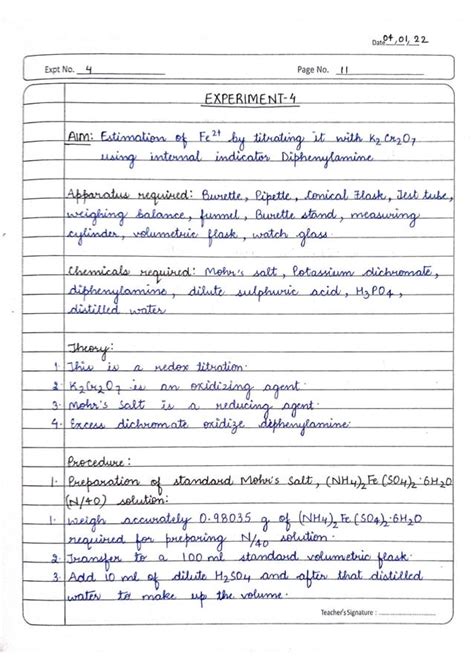 Date 04,01,22
Expt No. 4 Page No. 11
EXPERIMENT-4
Aim: Estimation of Fe²⁺ by titrating it with K₂Cr₂O₇
using internal indicator Diphenylamine
Apparatus required: Burette, Pipette, Conical Flask, Test tube,
weighing balance, funnel, Burette stand, measuring
cylinder, volumetric flask, watch glass.
Chemicals required: Mohr's salt, Potassium dichromate,
diphenylamine, dilute sulphuric acid, H₃PO₄,
distilled water
Theory:
1. This is a redox titration.
2. K₂Cr₂O₇ is an oxidizing agent.
3. Mohr's Salt is a reducing agent.
4. Excess dichromate oxidize diphenylamine.
Procedure:
1. Preparation of standard Mohr's Salt, (NH₄)₂Fe(SO₄)₂·6H₂O
(N/40) solution:
1. Weigh accurately 0.98035 g of (NH₄)₂Fe(SO₄)₂·6H₂O
required for preparing N/40 solution.
2. Transfer to a 100 ml standard volumetric flask.
3. Add 10 ml of dilute H₂SO₄ and after that distilled
water to make up the volume.
Teacher's Signature :